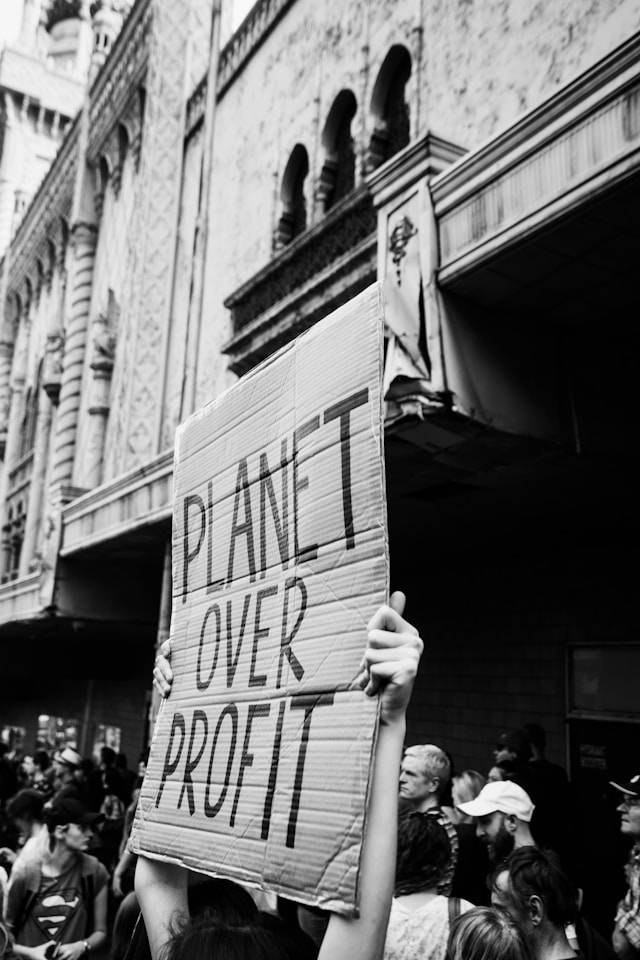 PLANET
OVER
PROFIT